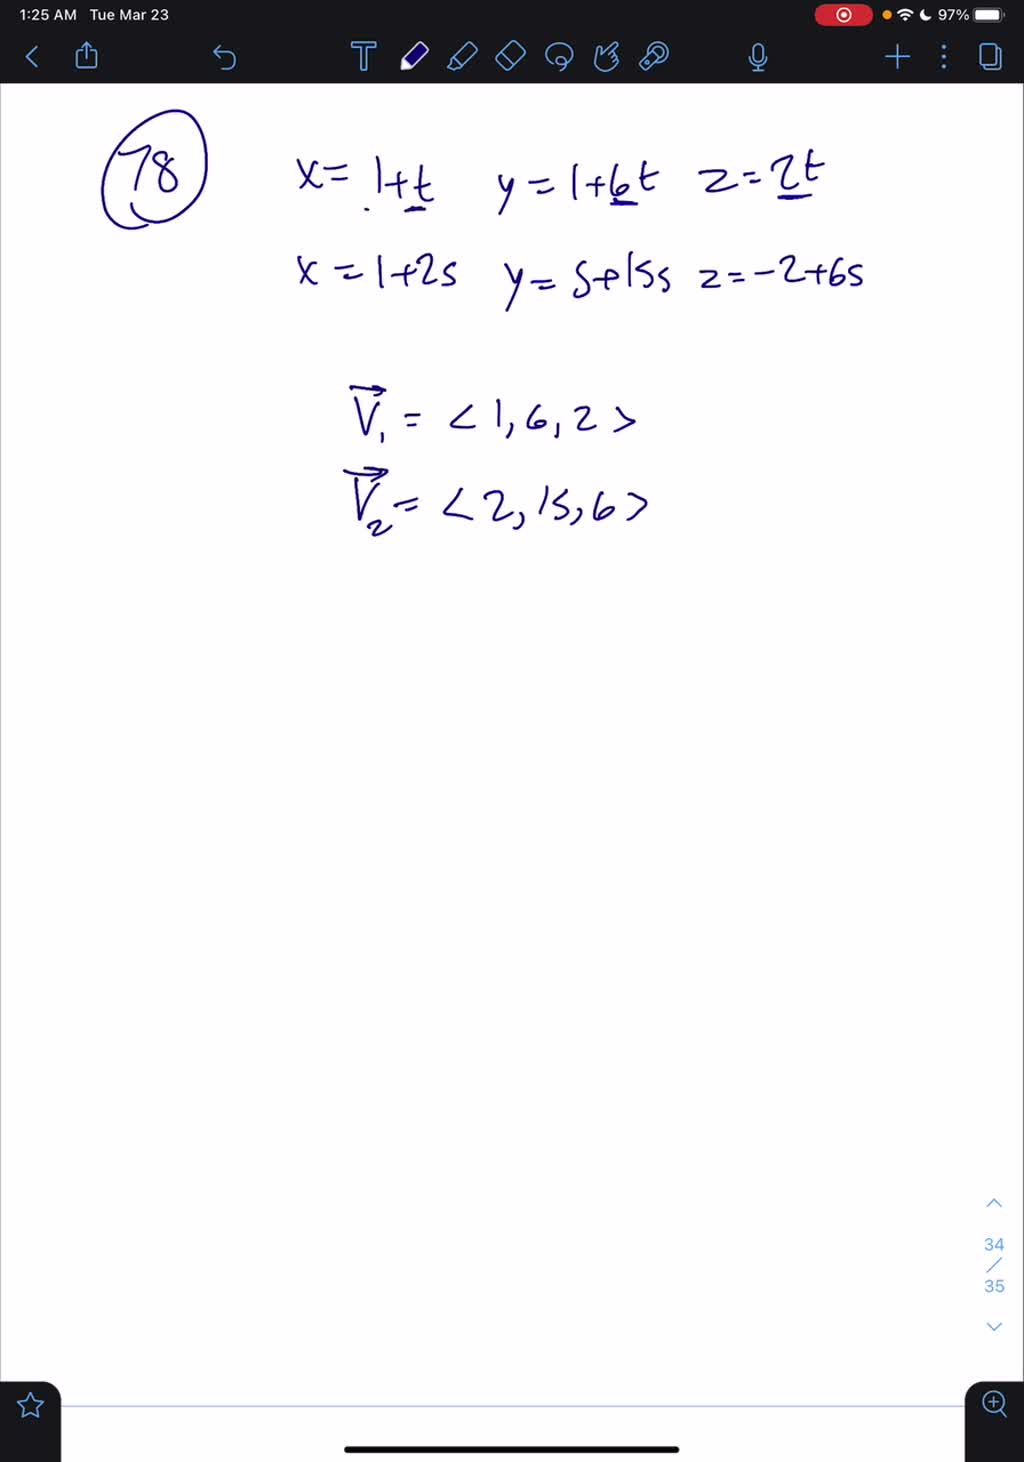 1:25 AM Tue Mar 23 97%
78
x = 1+t y = 1+6t z = 2t
x = 1+2s y = 5+15s z = -2+6s
V₁ = <1, 6, 2>
V₂ = <2, 15, 6>
34
/
35